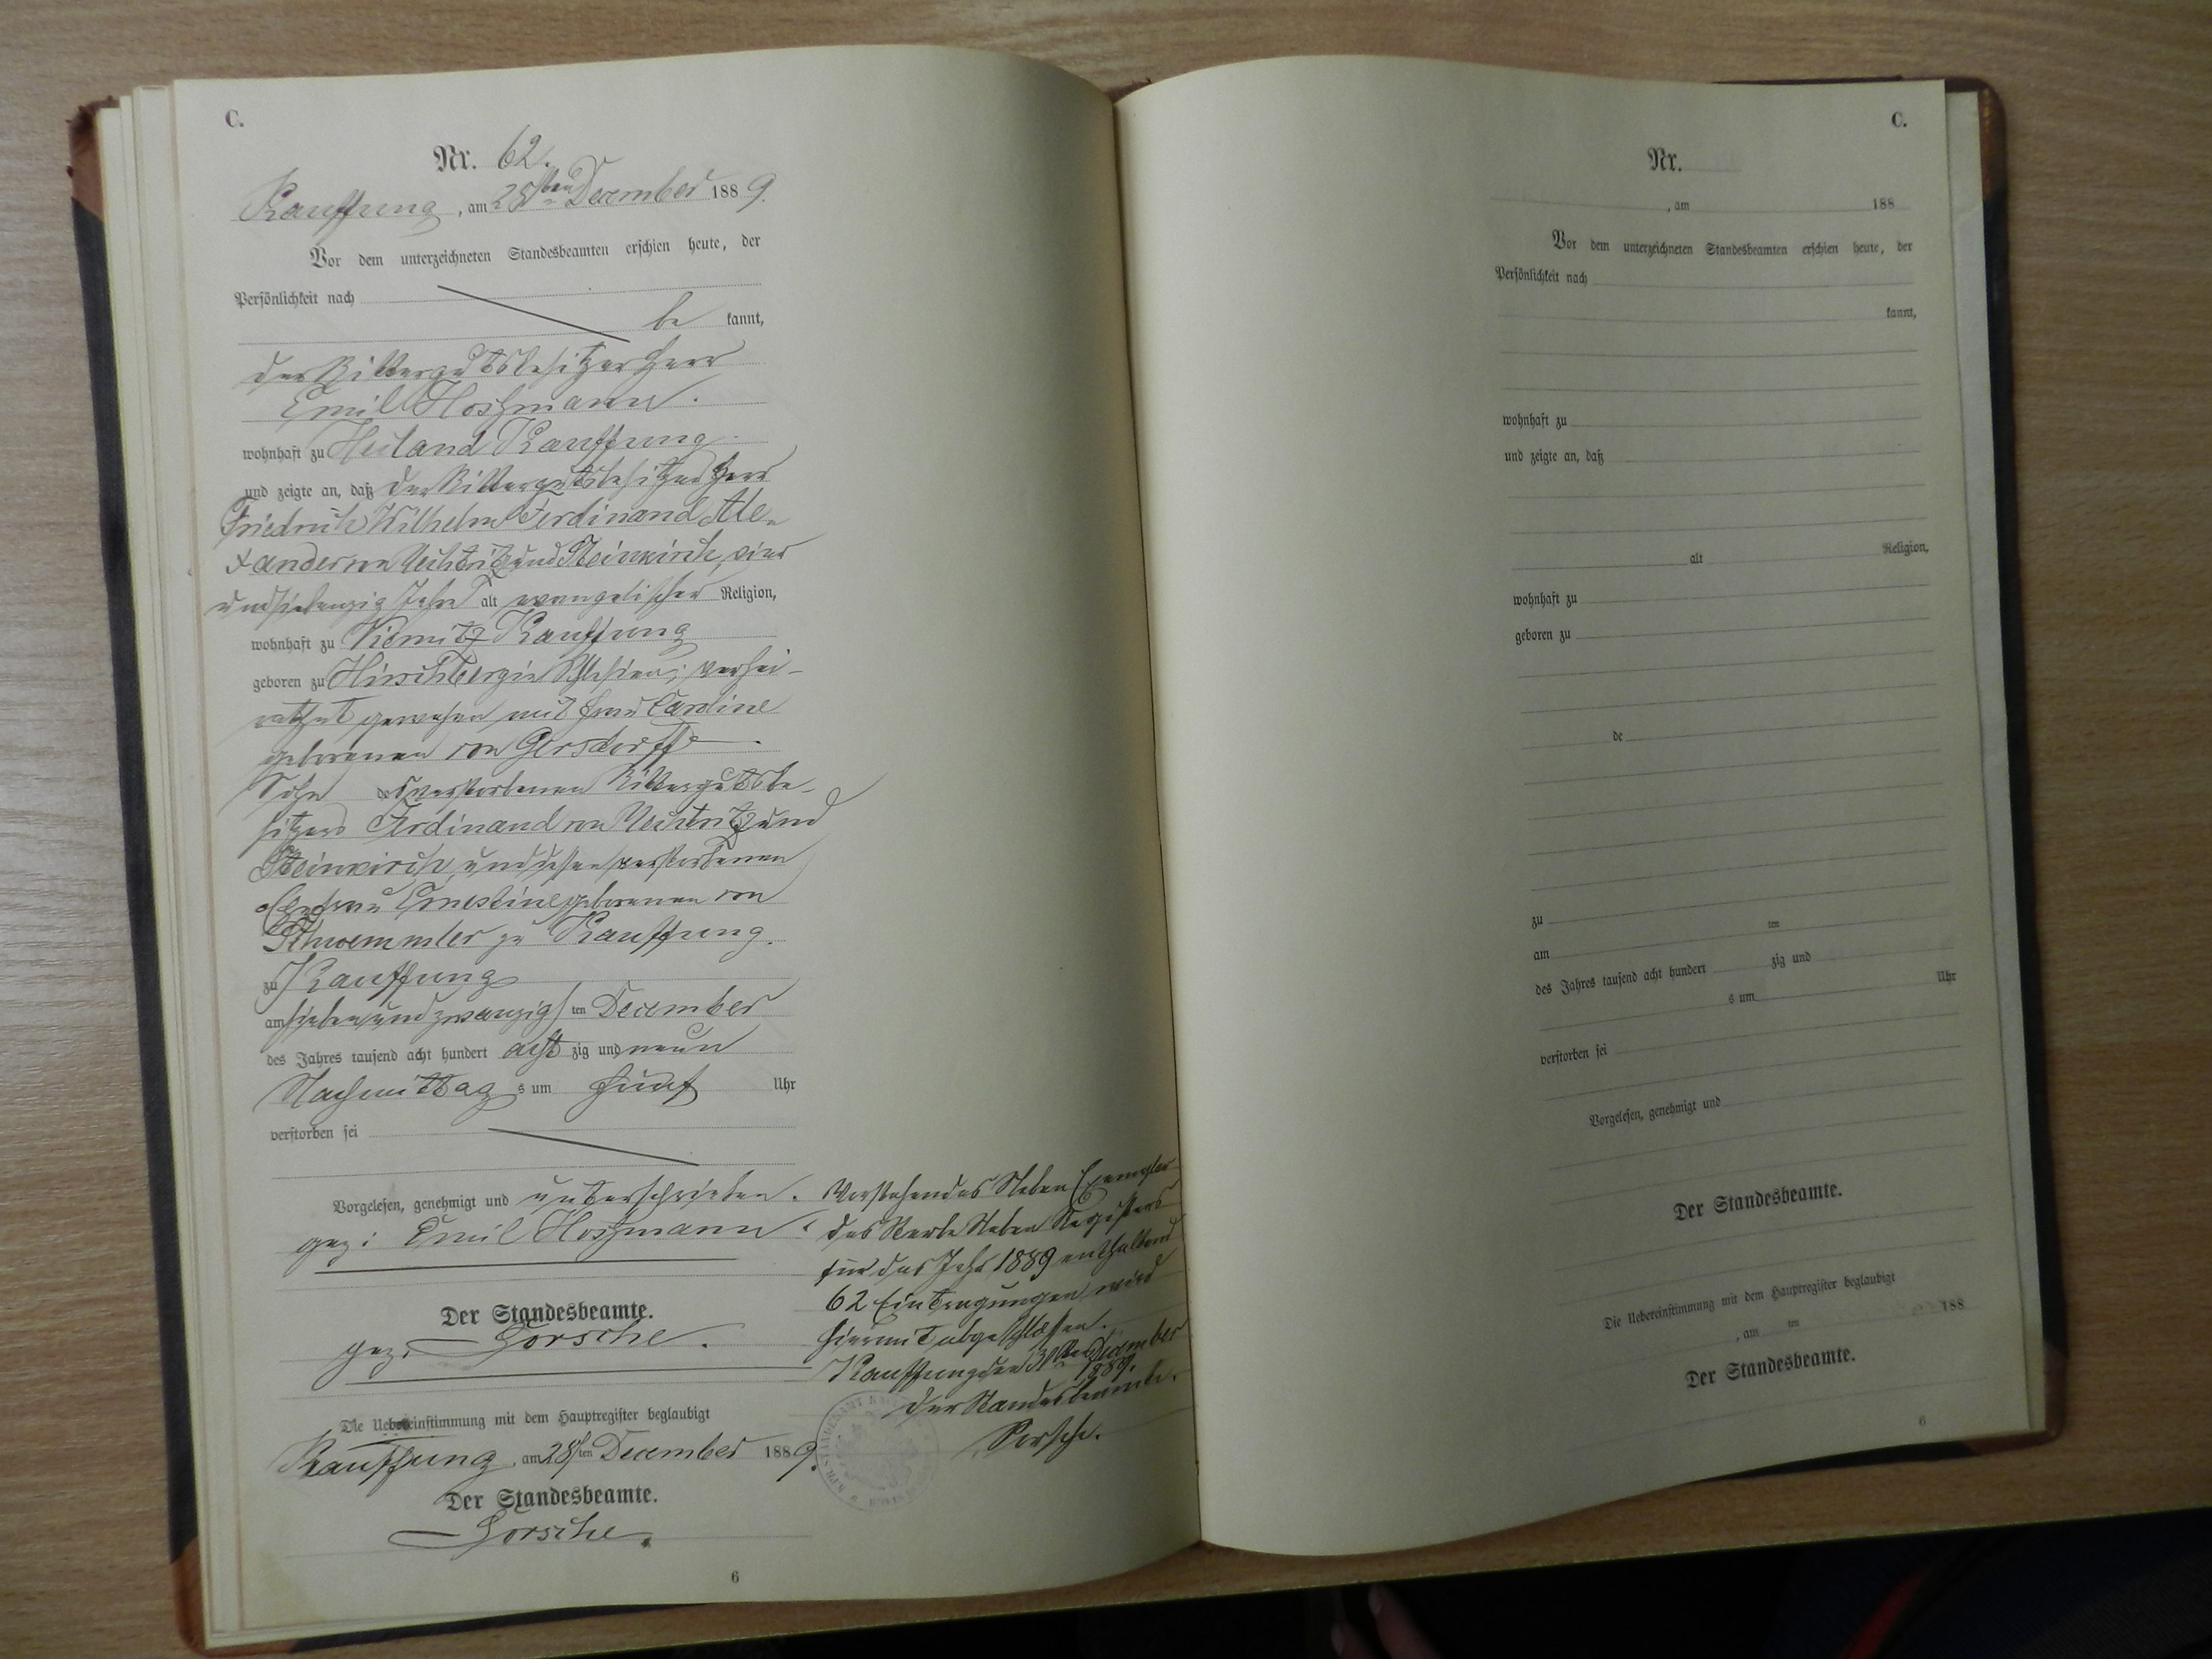 C.
Nr. 62.
Kauffung, am 28ten December 1889.
Vor dem unterzeichneten Standesbeamten erschien heute, der
Persönlichkeit nach
be kannt,
der Rittergutsbesitzer Herr
Emil Hoffmann.
wohnhaft zu Heiland Kauffung
und zeigte an, daß der Rittergutsbesitzer Herr
Friedrich Wilhelm Ferdinand Ale-
xander von Uechtritz und Steinkirch, vier
undsiebenzig Jahr alt evangelischer Religion,
wohnhaft zu Niemitz Kauffung
geboren zu Hirschberg in Schlesien; verhei-
rathet gewesen mit Frau Caroline
geborenen von Gersdorff
Sohn des verstorbenen Rittergutsbe-
sitzers Ferdinand von Uechtritz und
Steinkirch, und dessen verstorbenen
Ehefrau Ernestine geborenen von
Schwemmler zu Kauffung.
zu Kauffung
am siebenundzwanzigsten December
des Jahres tausend acht hundert acht zig und neun
Nachmittag s um fünf Uhr
verstorben sei
Vorgelesen, genehmigt und unterschrieben.
gez: Emil Hoffmann.
Der Standesbeamte.
gez. Porsche.
Die Uebereinstimmung mit dem Hauptregister beglaubigt
Kauffung, am 28sten December 1889.
Der Standesbeamte.
Porsche.
6
Vorstehendes Neben Exemplar
des Sterbe Neben Registers
für das Jahr 1889 enthaltend
62 Eintragungen wird
hiermit abgeschlossen.
Kauffung den 31ten December
1889.
Der Standesbeamte.
Porsche.
STANDESAMT
C.
Nr.
, am 188
Vor dem unterzeichneten Standesbeamten erschien heute, der
Persönlichkeit nach
kannt,
wohnhaft zu
und zeigte an, daß
alt Religion,
wohnhaft zu
geboren zu
de
zu
am ten
des Jahres tausend acht hundert zig und
s um Uhr
verstorben sei
Vorgelesen, genehmigt und
Der Standesbeamte.
Die Uebereinstimmung mit dem Hauptregister beglaubigt
, am ten 188
Der Standesbeamte.
6